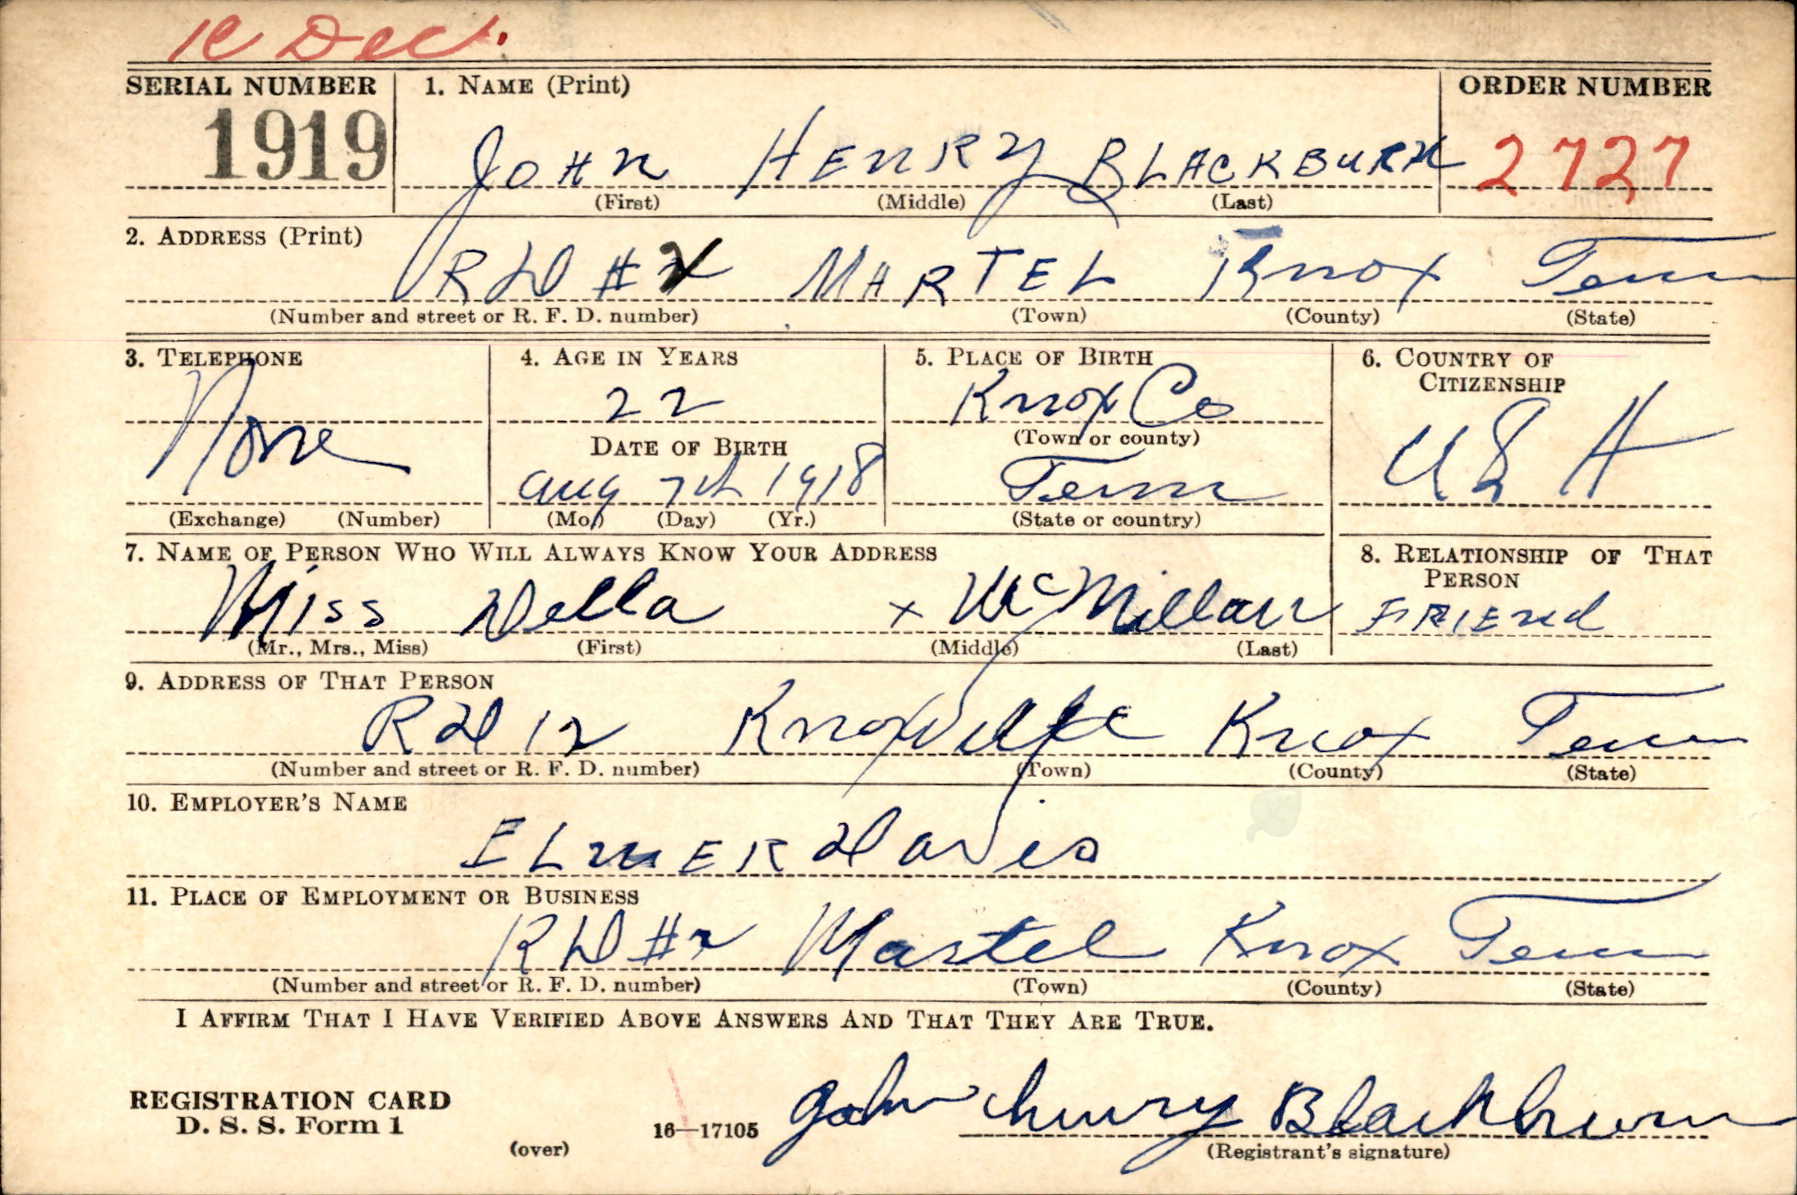 Dec.
SERIAL NUMBER
1919
1. NAME (Print)
JOHN HENRY BLACKBURN
(First) (Middle) (Last)
ORDER NUMBER
2727
2. ADDRESS (Print)
RD #2 MARTEL Knox Tenn
(Number and street or R. F. D. number) (Town) (County) (State)
3. TELEPHONE
None
(Exchange) (Number)
4. AGE IN YEARS
22
DATE OF BIRTH
Aug 7th 1918
(Mo.) (Day) (Yr.)
5. PLACE OF BIRTH
Knox Co
(Town or county)
Tenn
(State or country)
6. COUNTRY OF
CITIZENSHIP
USA
7. NAME OF PERSON WHO WILL ALWAYS KNOW YOUR ADDRESS
Miss Della x McMillan
(Mr., Mrs., Miss) (First) (Middle) (Last)
8. RELATIONSHIP OF THAT
PERSON
FRIEND
9. ADDRESS OF THAT PERSON
RD 12 Knoxville Knox Tenn
(Number and street or R. F. D. number) (Town) (County) (State)
10. EMPLOYER'S NAME
ELMER Davis
11. PLACE OF EMPLOYMENT OR BUSINESS
RD #2 Martel Knox Tenn
(Number and street or R. F. D. number) (Town) (County) (State)
I AFFIRM THAT I HAVE VERIFIED ABOVE ANSWERS AND THAT THEY ARE TRUE.
REGISTRATION CARD
D. S. S. Form 1
(over)
16—17105
John henry Blackburn
(Registrant's signature)